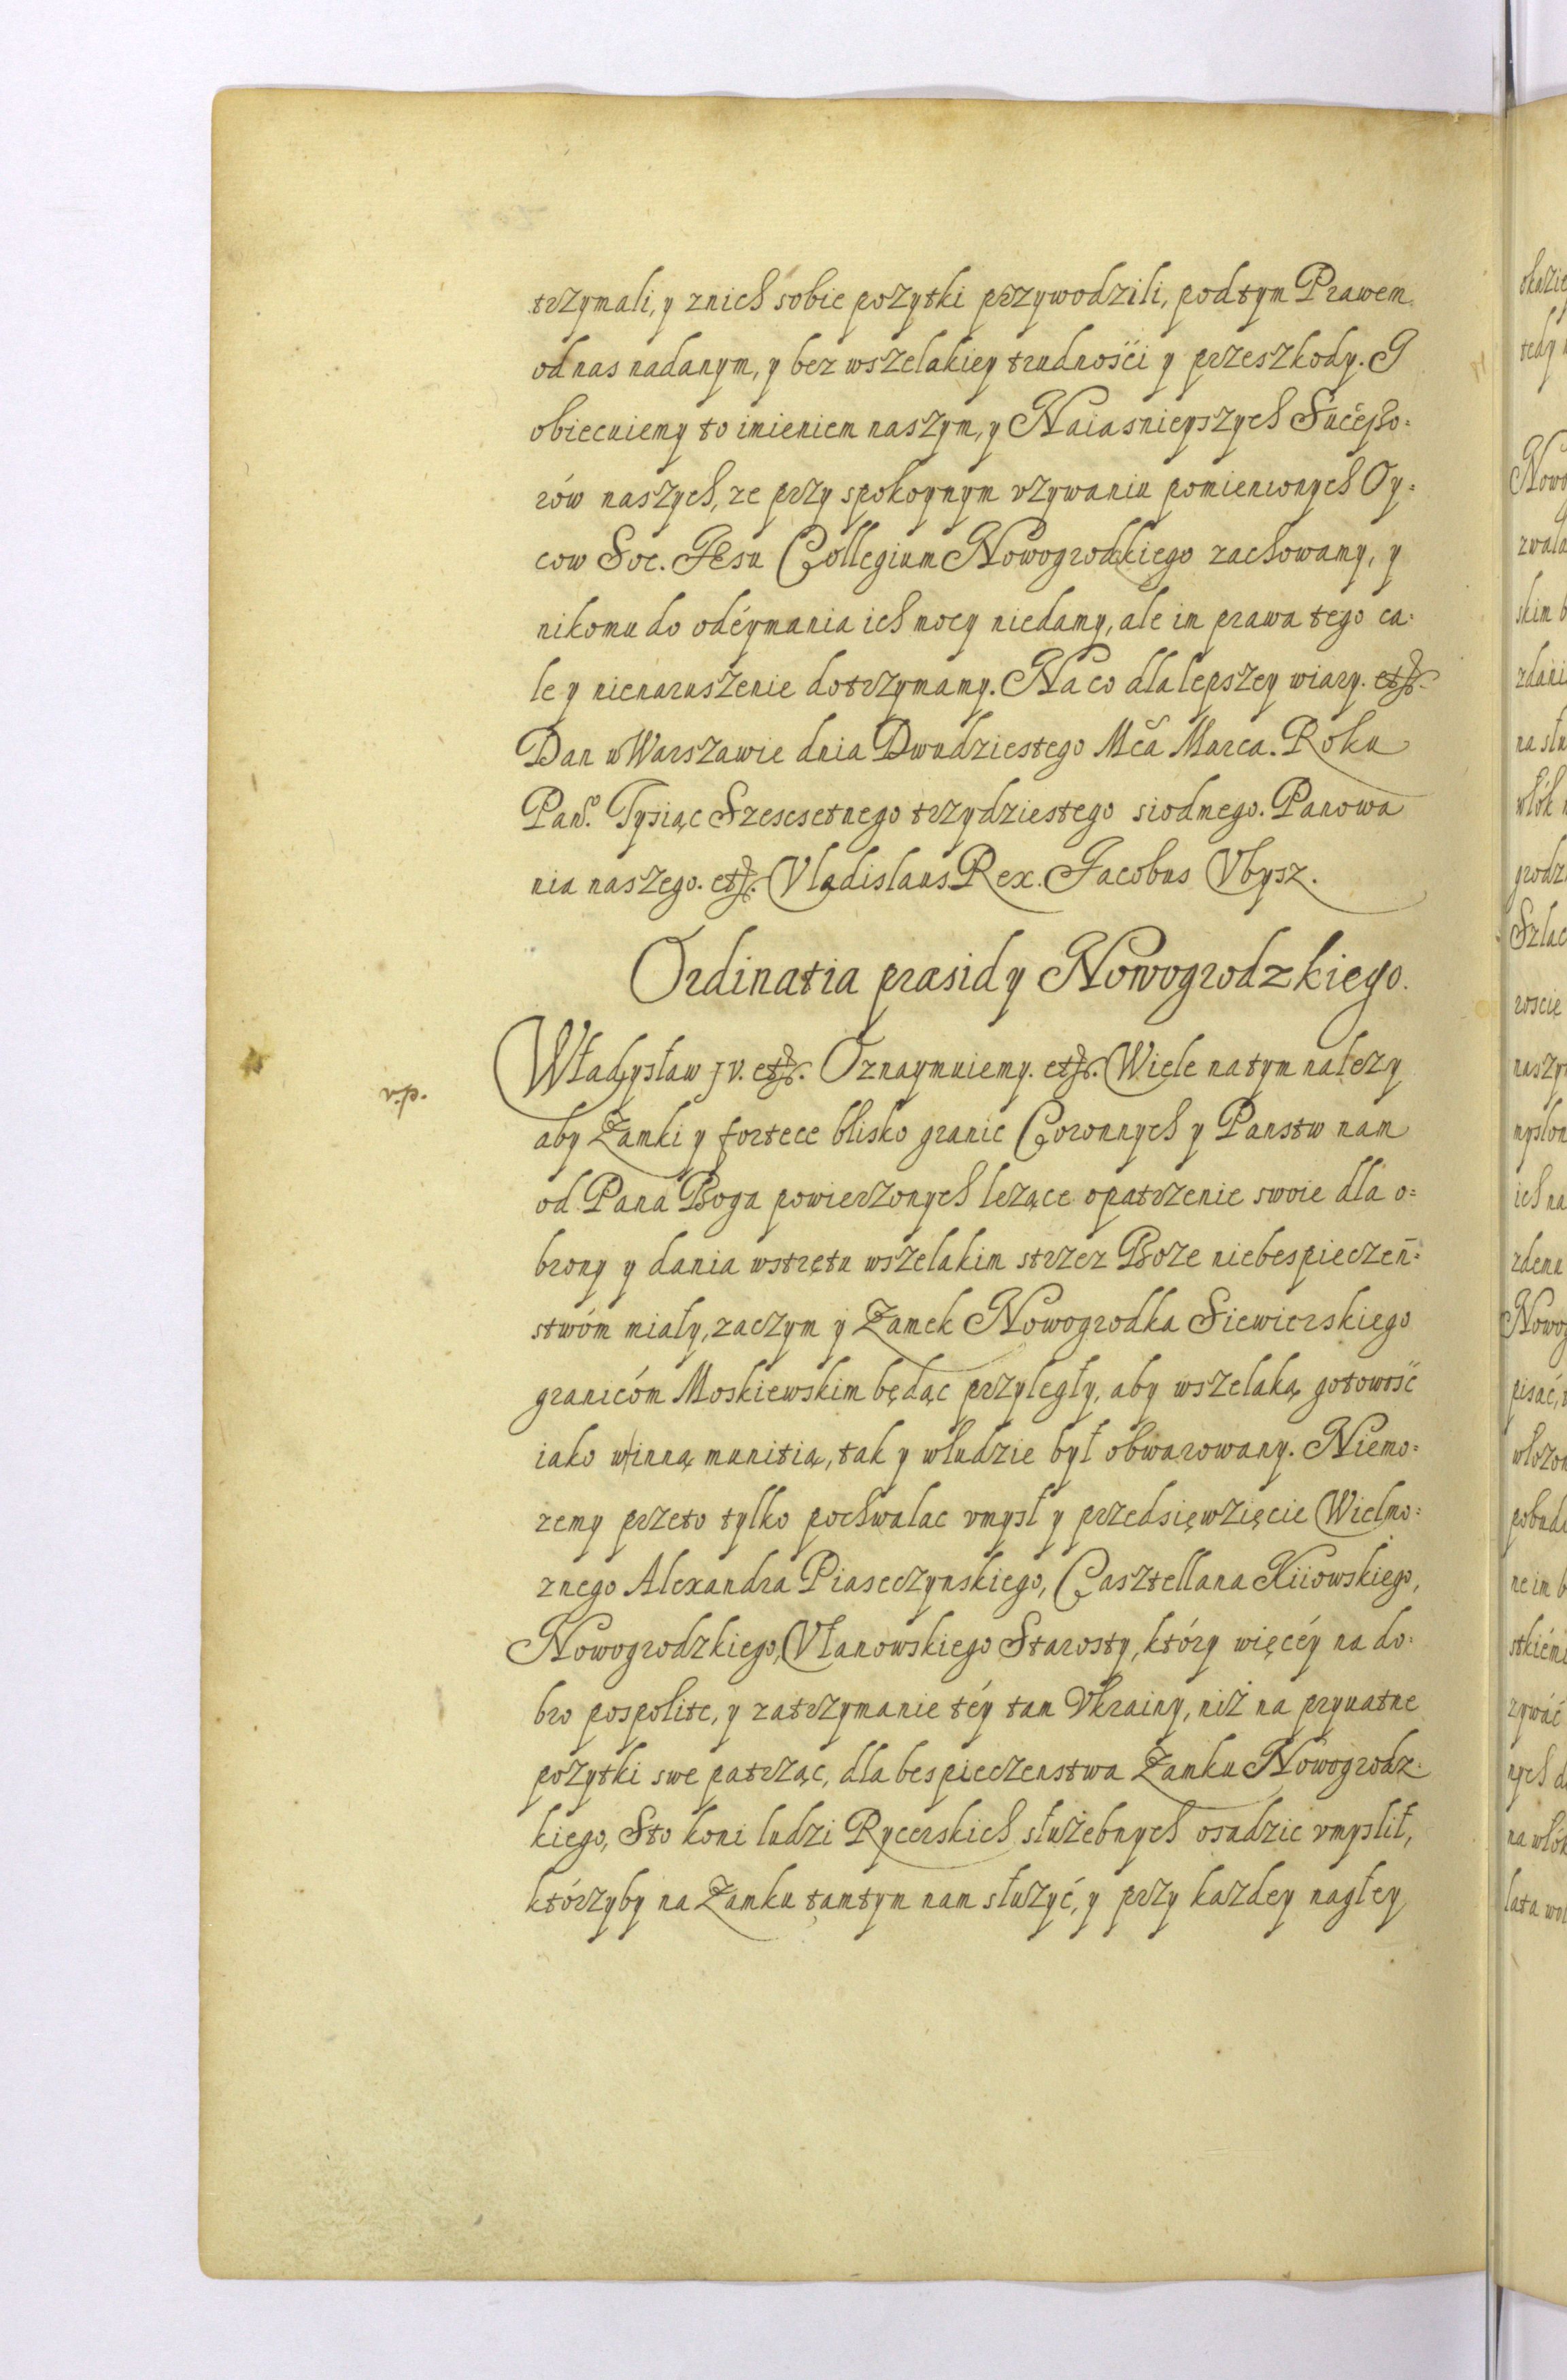 trzymali, y znich sobie pozytki przywodzili, pod tym Prawem
od nas nadanym, y bez wszelakiey trudności y przeszkody. I
obiecuiemy to imieniem naszym, y Naiasnieyszych Sucesso=
rów naszych, ze przy spokoynym vzywaniu pomienionych Oy=
cow Soc. JEsu Collegium Nowogrodzkiego zachowamy, y
nikomu do odéymania ich mocy niedamy, ale im prawa tego ca=
le y nienaruszenie dotrzymamy. Na co dla lepszey wiary. etc.
Dan w Warszawie dnia Dwudziestego Mca Marca. Roku
Pans. Tysiąc Szescsetnego trzydziestego siodmego. Panowa
nia naszego. etc. Vladislaus Rex. Jacobus Vbysz.
Ordinatia prasidy Nowogrodzkiego.
Władysław jv. etc. Oznaymuiemy. etc. Wiele na tym nalezy
aby Zamki y fortece blisko granic Coronnych y Panstw nam
od Pana Boga powierzonych lezące opatrzenie swoie dla o=
brony y dania wstrętu wszelakim strzez Boze niebespieczeń=
stwóm miały, zaczym y Zamek Nowogrodka Siewierskiego
granicóm Moskiewskim będąc przyległy, aby wszelaką gotowość
iako w inną munitią, tak y w ludzie był obwarowany. Niemo=
zemy przeto tylko pochwalac vmysł y przedsięwzięcie Wielmo=
znego Alexandra Piaseczynskiego, Casztellana Kiiowskiego,
Nowogrodzkiego, Vłanowskiego Starosty, który więcéy na do=
bro pospolite, y zatrzymanie téy tam Vkrainy, niż na pryuatne
pozytki swe patrząc, dla bespieczenstwa Zamku Nowogrodz=
kiego, Sto koni ludzi Rycerskich służebnych osadzic vmyslił,
którzyby na Zamku tamtym nam służyć, y przy kazdey nagłey